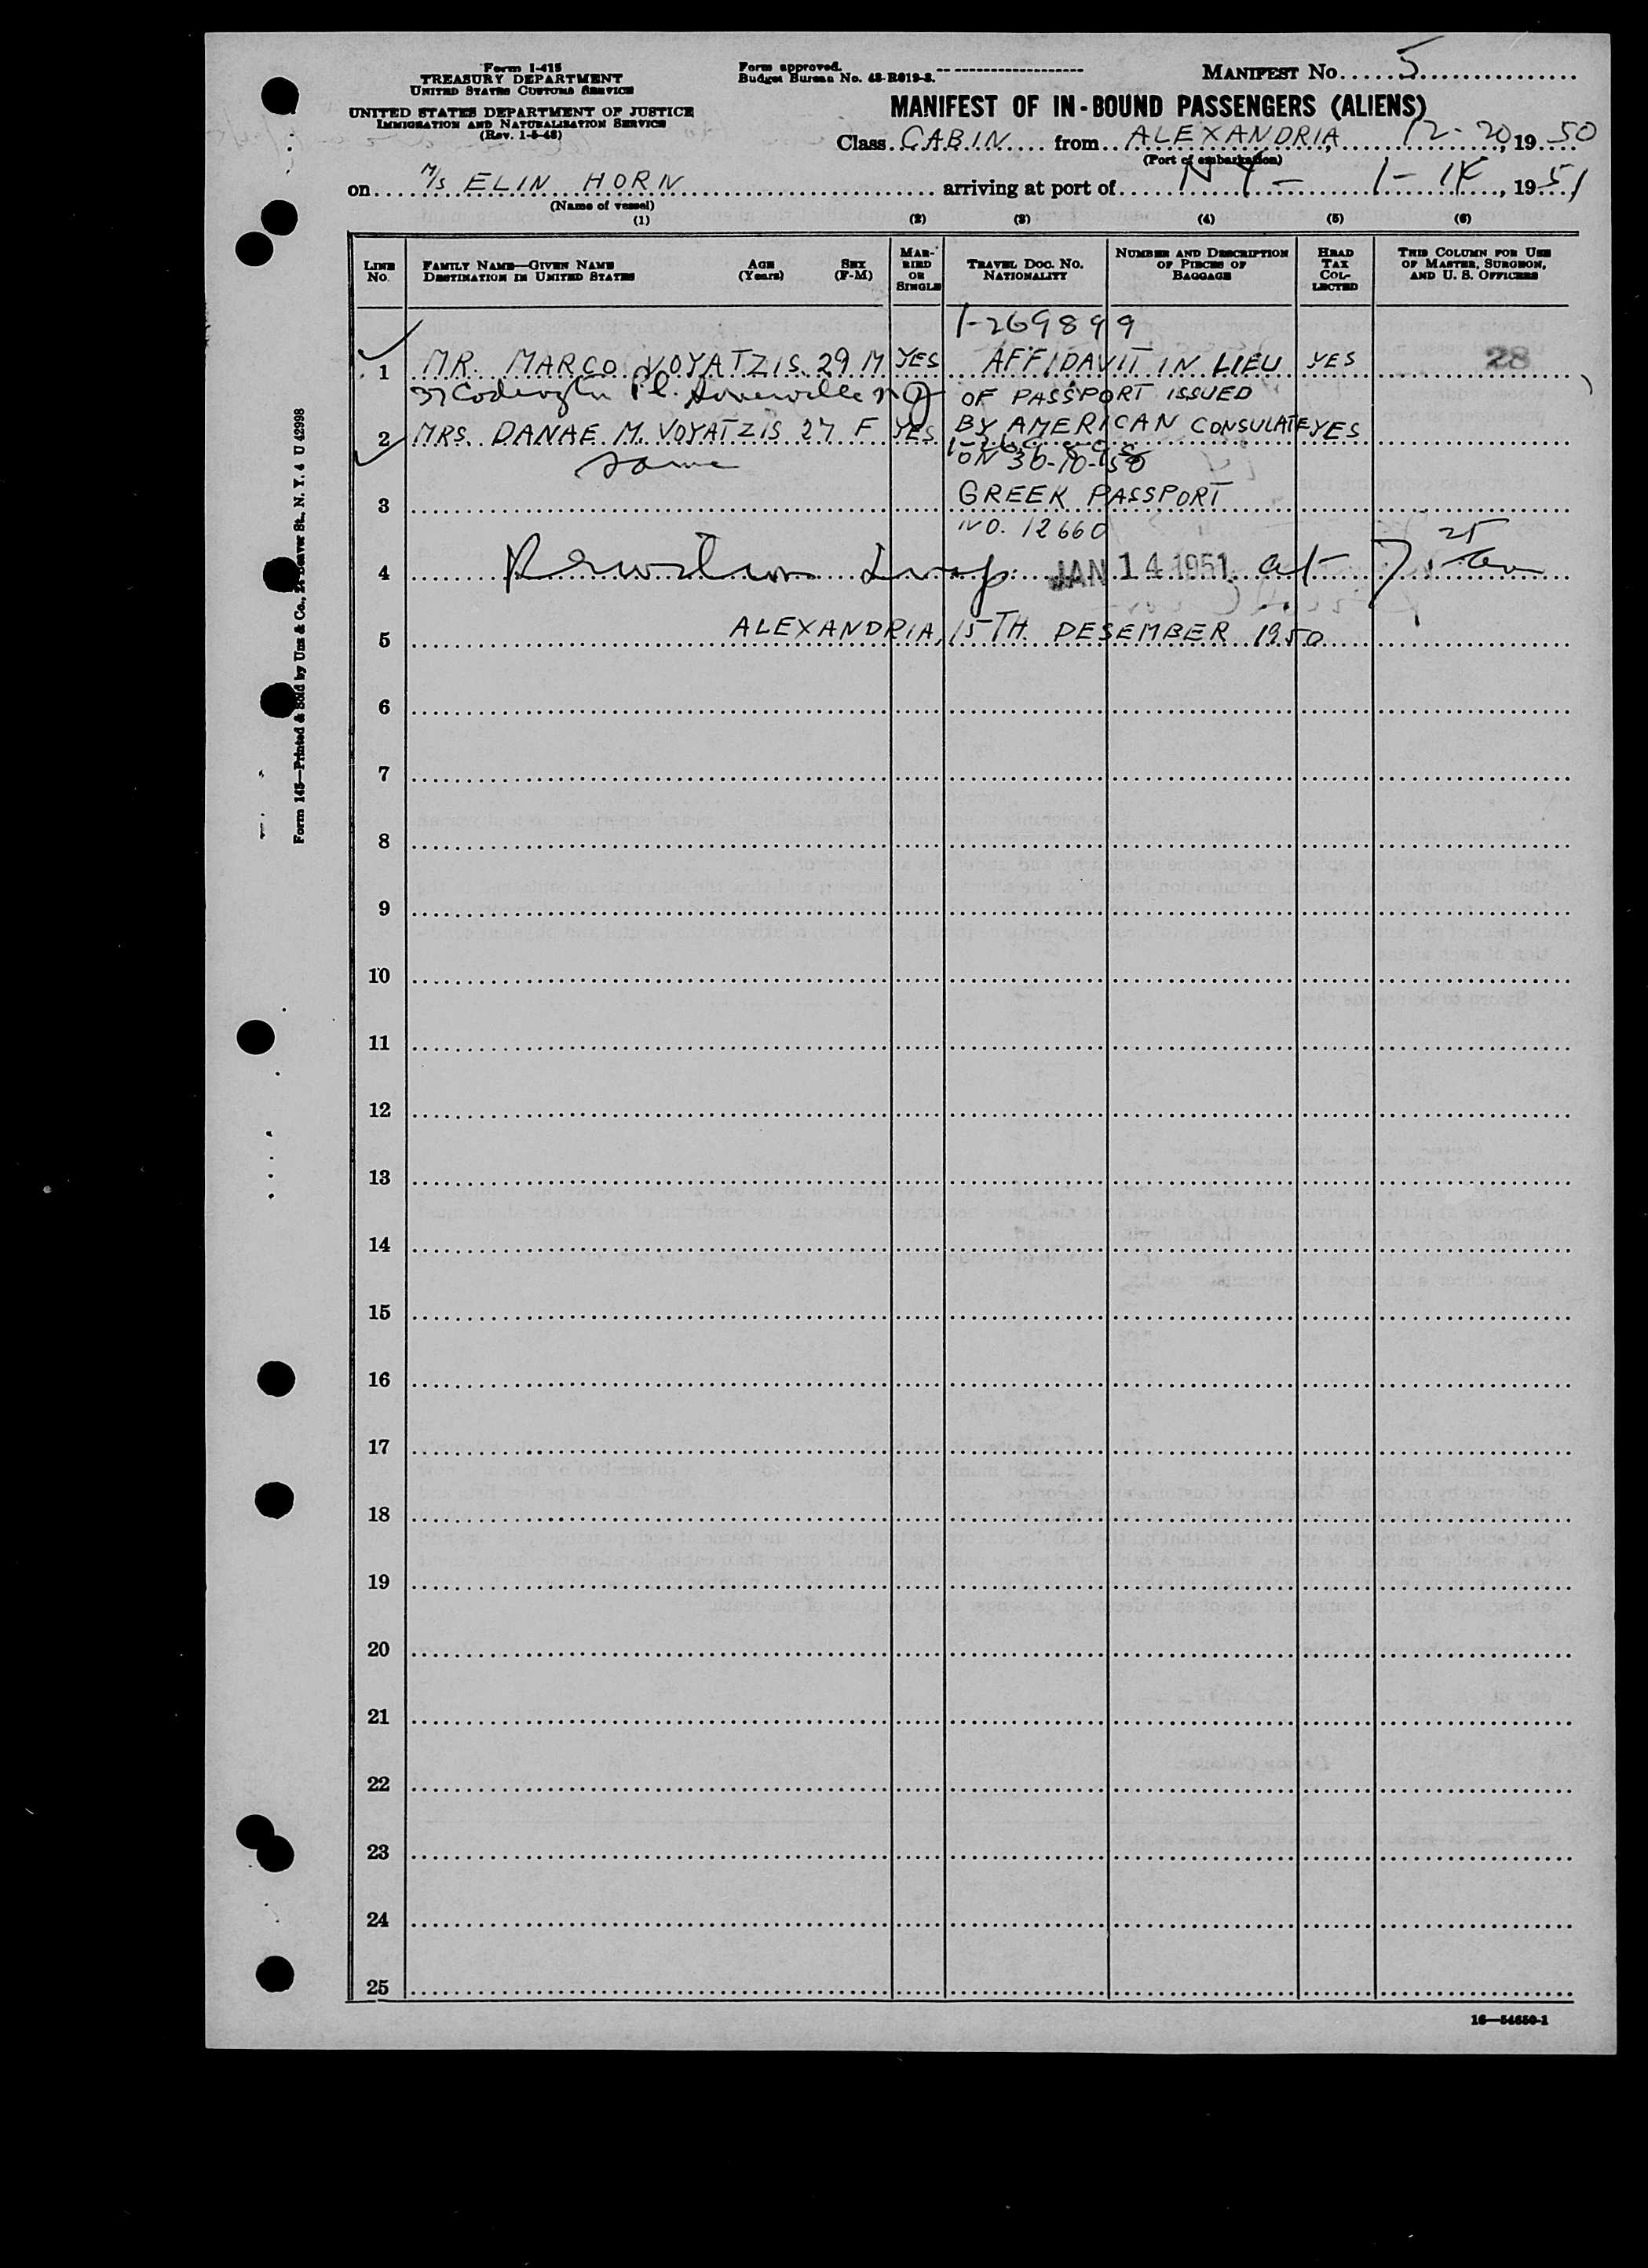 Form I-415
TREASURY DEPARTMENT
UNITED STATES CUSTOMS SERVICE
UNITED STATES DEPARTMENT OF JUSTICE
IMMIGRATION AND NATURALIZATION SERVICE
(Rev. 1-5-48)
Form approved.
Budget Bureau No. 43-R019-3.
MANIFEST NO. 5
MANIFEST OF IN-BOUND PASSENGERS (ALIENS)
Class CABIN from ALEXANDRIA, 12-20, 1950
(Port of embarkation)
on M/S ELIN HORN arriving at port of N Y - 1-14, 1951
(Name of vessel)
(1) (2) (3) (4) (5) (6)
LINE NO. FAMILY NAME—GIVEN NAME DESTINATION IN UNITED STATES AGE (Years) SEX (F-M) MARRIED OR SINGLE TRAVEL DOC. NO. NATIONALITY NUMBER AND DESCRIPTION OF PIECES OF BAGGAGE HEAD TAX COLLECTED THIS COLUMN FOR USE OF MASTER, SURGEON, AND U. S. OFFICERS
1-269899
1 MR. MARCO VOYATZIS 29 M YES AFFIDAVIT IN LIEU YES 28
37 Pl. N J OF PASSPORT ISSUED
2 MRS. DANAE M. VOYATZIS 27 F YES BY AMERICAN CONSULATE YES
same ON 30-10-150
3 GREEK PASSPORT
NO. 12660
4 Insp. JAN 14 1951 at 7 25 am
5 ALEXANDRIA, 15TH DESEMBER 1950
6
7
8
9
10
11
12
13
14
15
16
17
18
19
20
21
22
23
24
25
16—54650-1
Form 145—Printed & Sold by Unz & Co., 24 Beaver St., N. Y. 4 U 42998